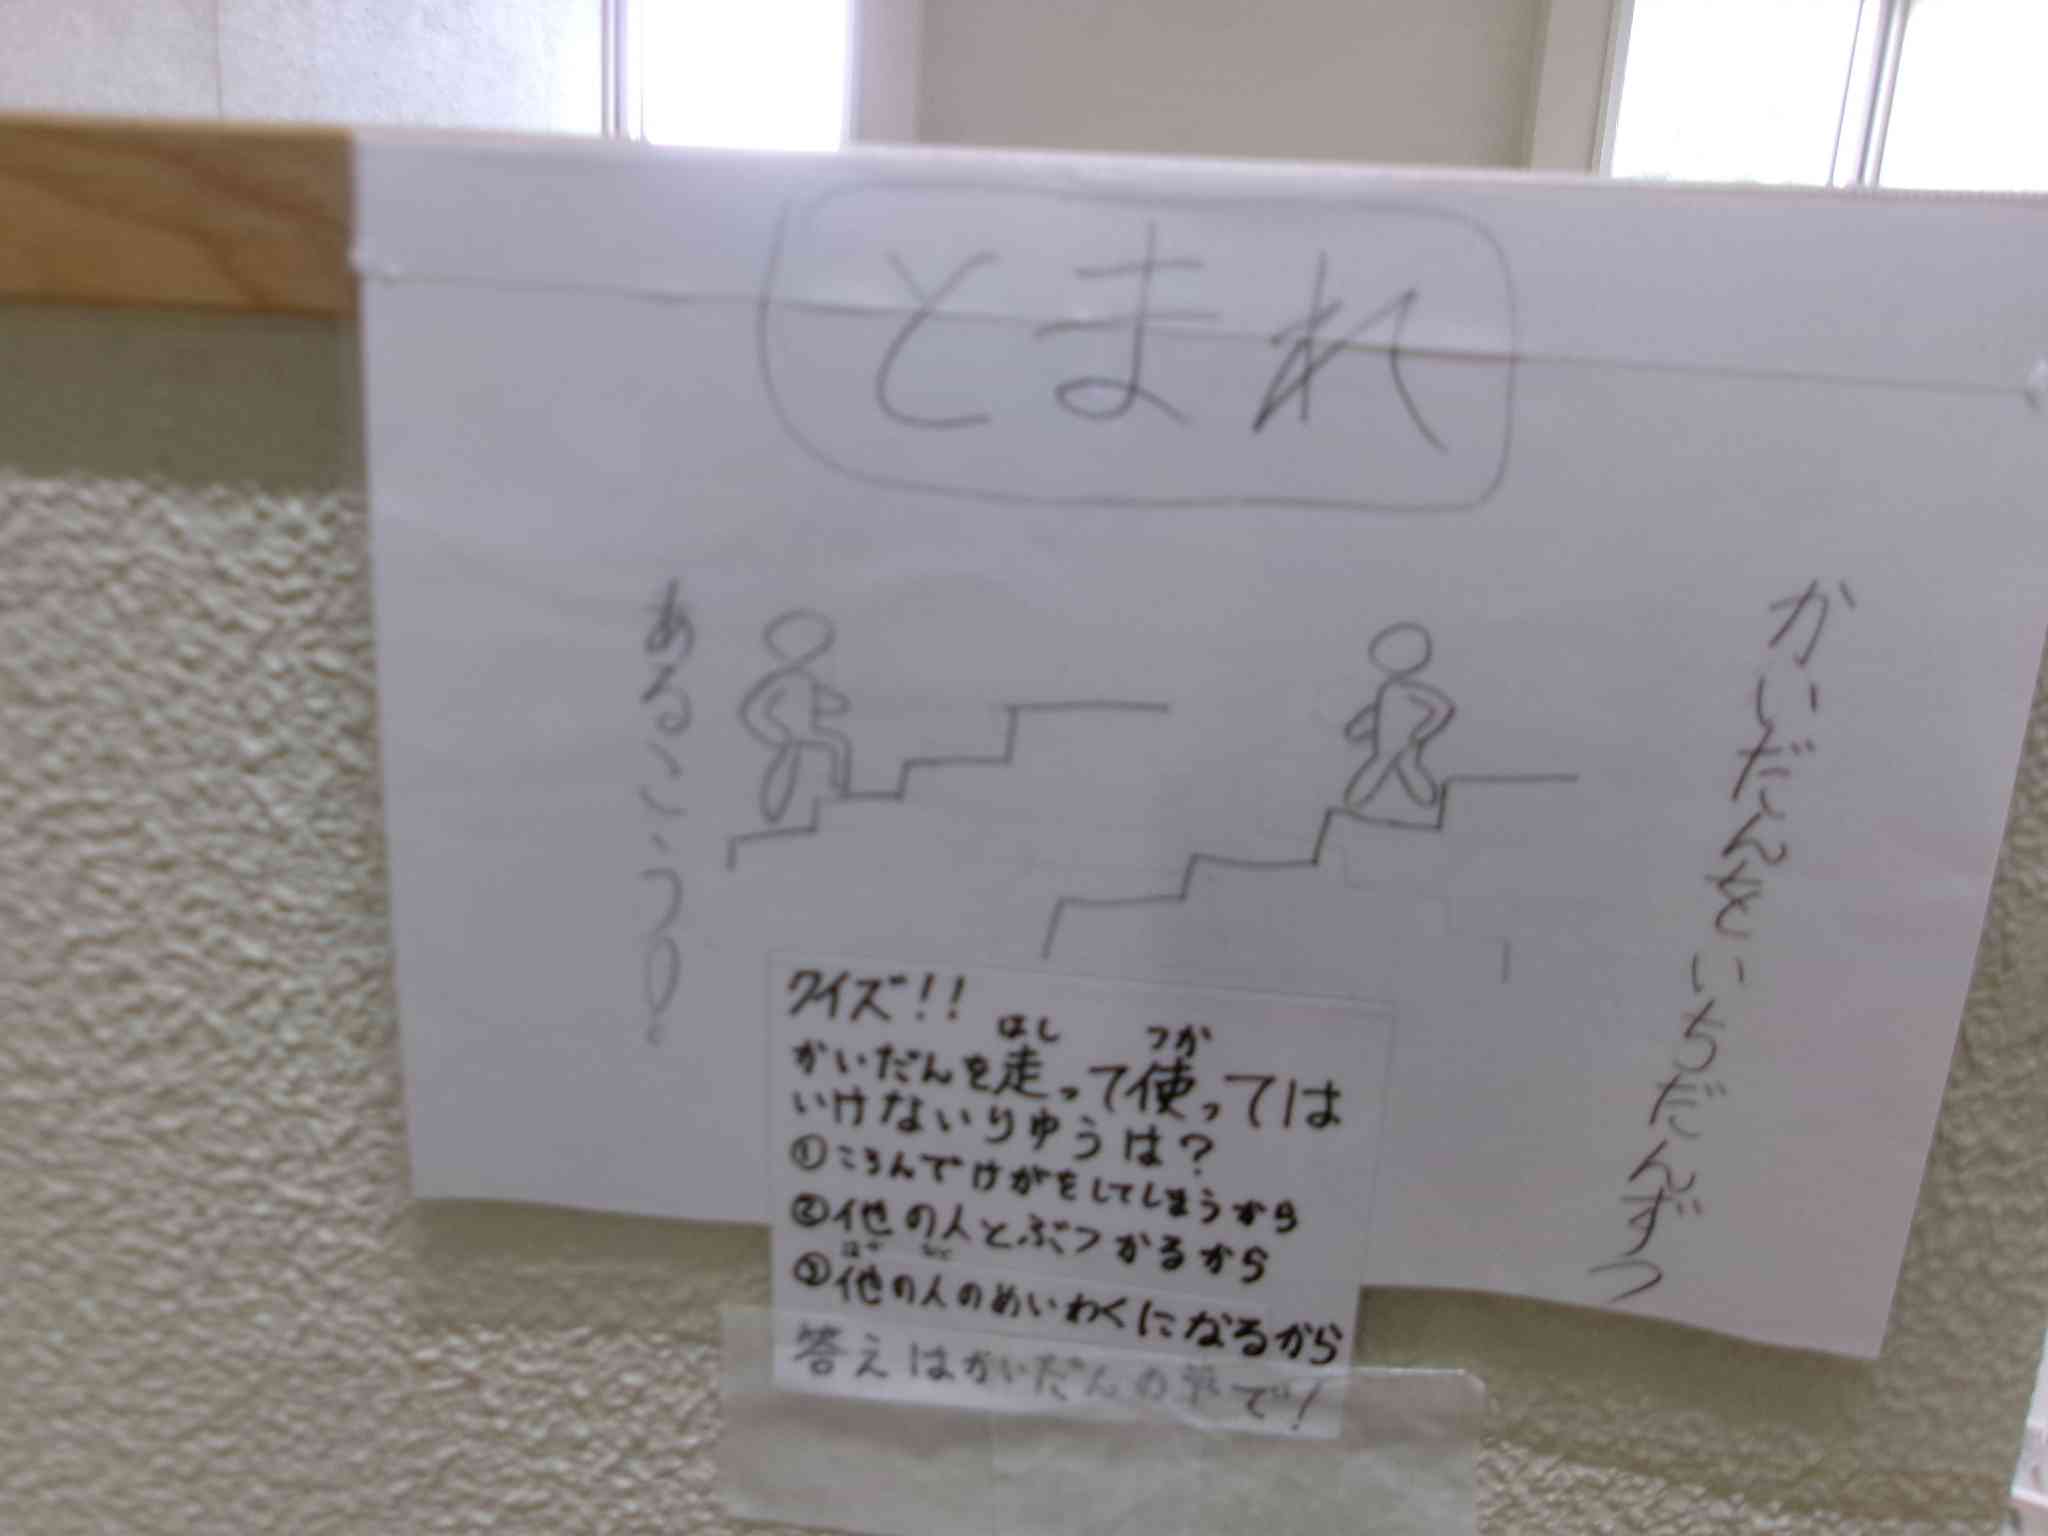 とまれ
かいだんをいちだんずつ
あるこう!
クイズ!!
かいだんを走って使っては
はし つか
いけないりゆうは?
①ころんでけがをしてしまうから
②他の人とぶつかるから
③他の人のめいわくになるから
答えはかいだんの
で!